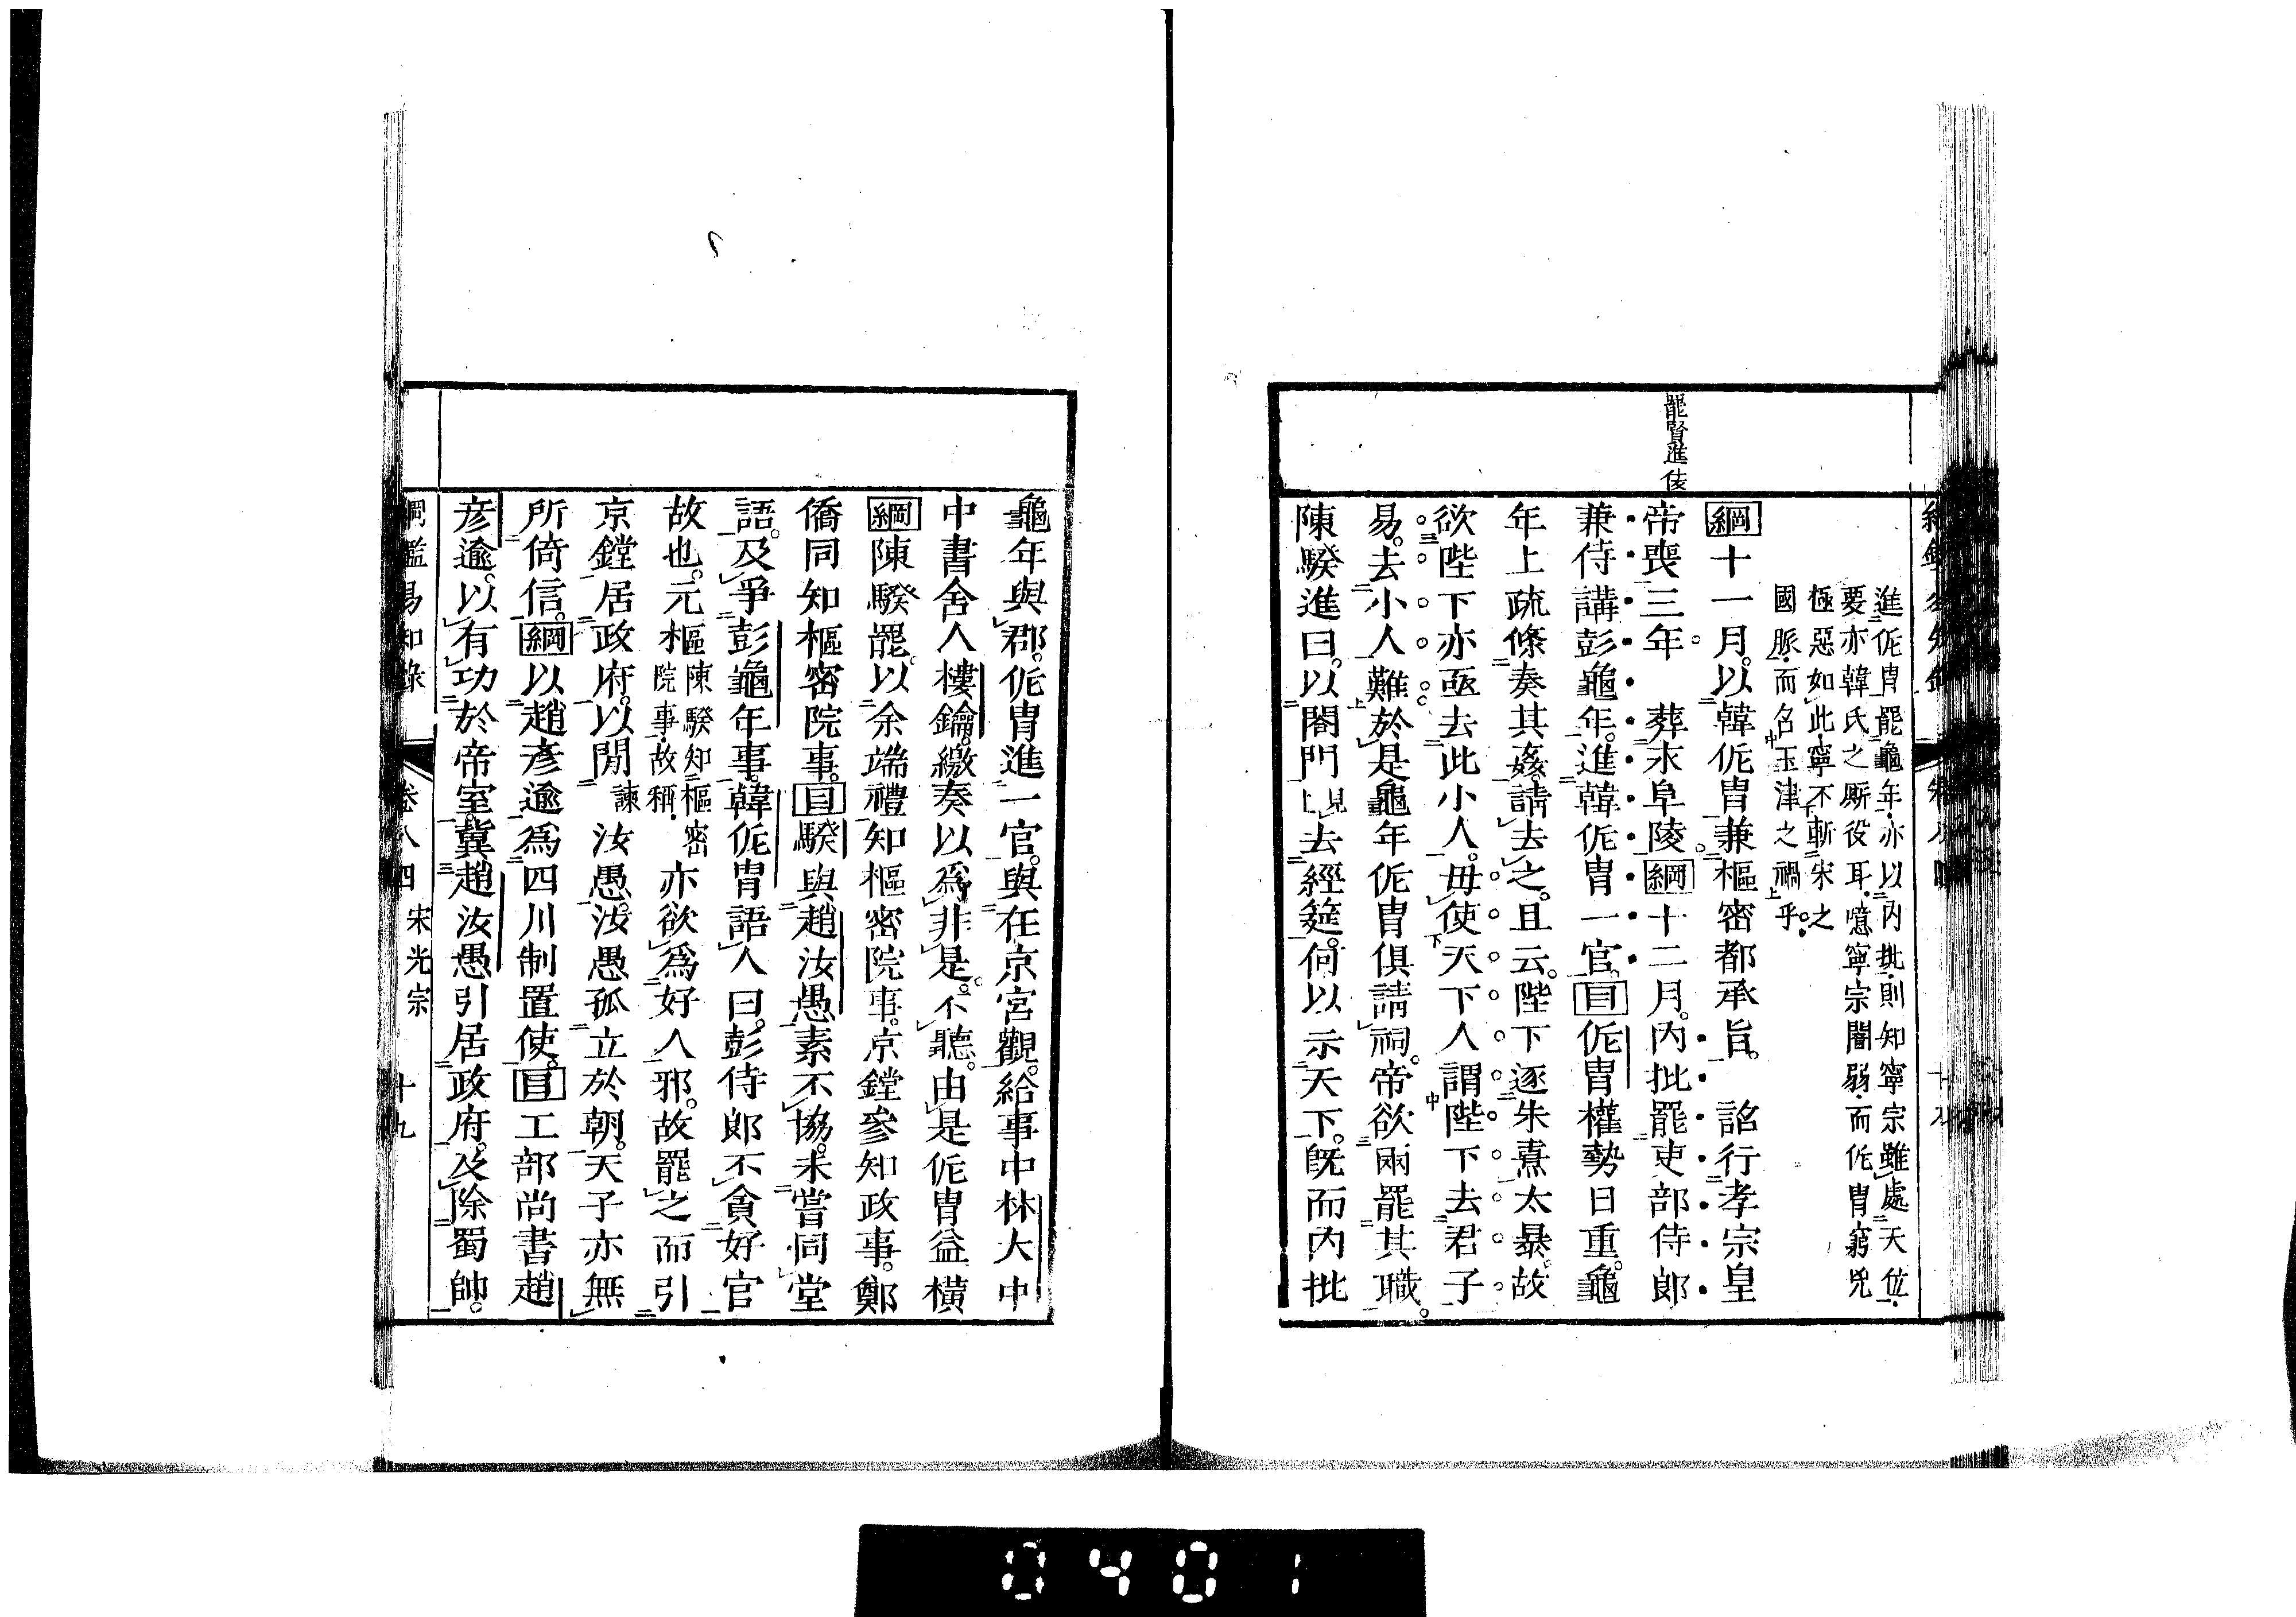 罷賢進佞
進侂冑罷龜年亦以内批則知寧宗雖處天位
要亦韓氏之厮役耳噫寧宗闇弱而侂冑窮兇
極惡如此寧不斬宋之
國脈而名玉津之禍乎
綱十一月以韓侂冑兼樞密都承旨 詔行孝宗皇
帝喪三年 葬永阜陵綱十二月内批罷吏部侍郎
兼侍講彭龜年進韓侂冑一官目侂冑權勢日重龜
年上疏條奏其姦請去之且云陛下逐朱熹太暴故
欲陛下亦亟去此小人毋使天下人謂陛下去君子
易去小人難於是龜年侂冑俱請祠帝欲兩罷其職
陳騤進曰以閤門見上去經筵何以示天下旣而内批
龜年與郡侂冑進一官與在京宮觀給事中林大中
中書舍人樓鑰繳奏以爲非是不聽由是侂冑益橫
綱陳騤罷以余端禮知樞密院事京鏜參知政事鄭
僑同知樞密院事目騤與趙汝愚素不協未嘗同堂
語及爭彭龜年事韓侂冑語人曰彭侍郎不貪好官
故也元樞陳騤知樞密院事故稱亦欲爲好人邪故罷之而引
京鏜居政府以閒諫汝愚汝愚孤立於朝天子亦無
所倚信綱以趙彥逾爲四川制置使目工部尚書趙
彥逾以有功於帝室冀趙汝愚引居政府及除蜀帥
綱鑑易知錄 卷八四 宋光宗 十九
0401